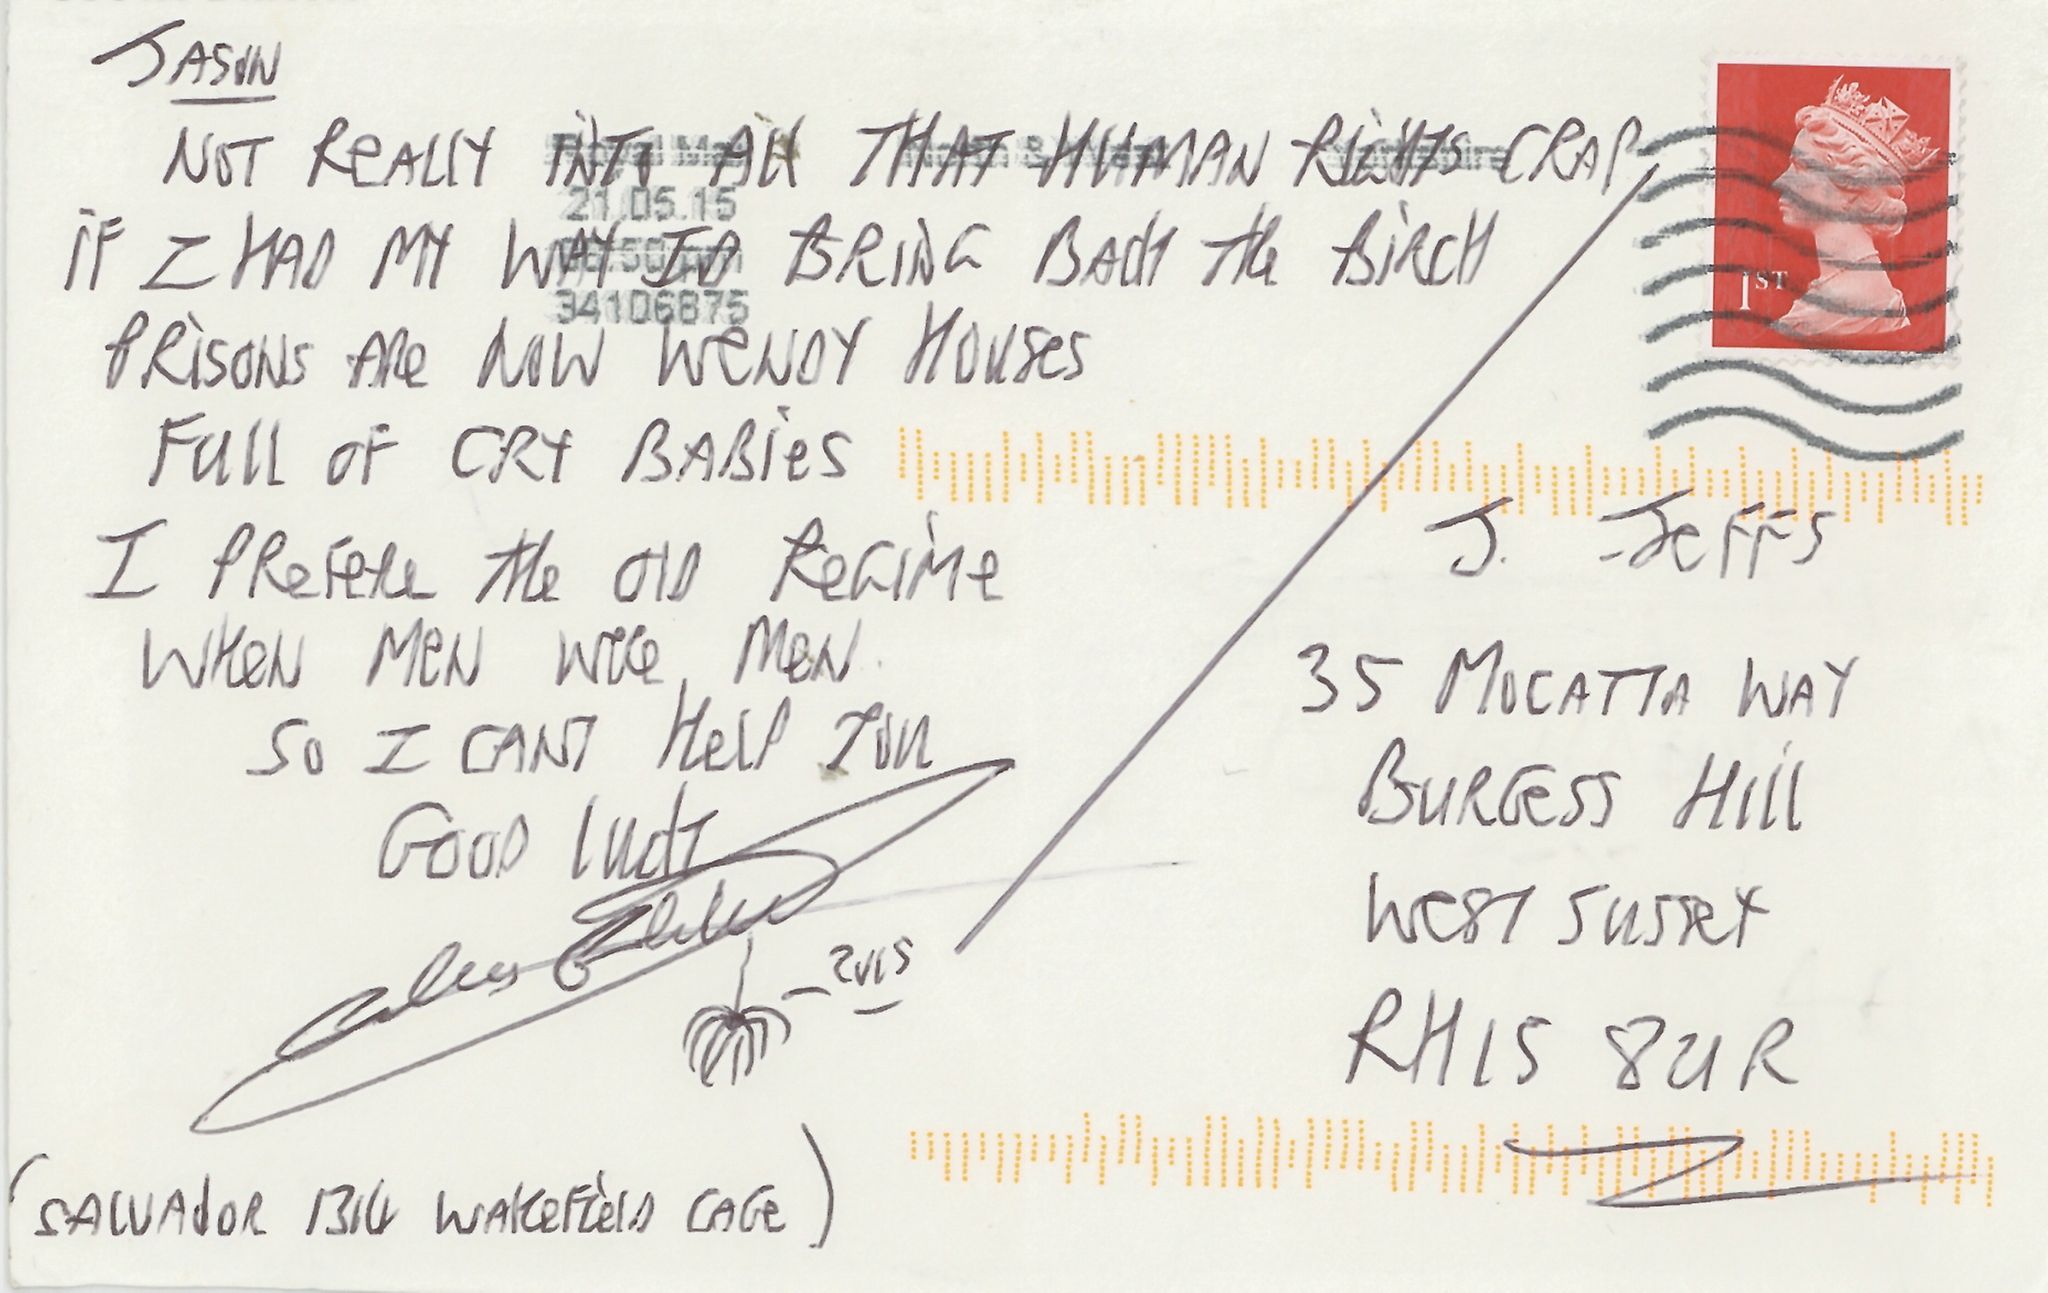 JASON
NOT REALLY INTO ALL THAT HUMAN RIGHTS CRAP
IF I HAD MY WAY ID BRING BACK the BIRCH
PRISONS ARE NOW WENDY HOUSES
FULL OF CRY BABIES
I PREFERE the OLD REGIME
WHEN MEN WERE MEN.
SO I CANT HELP YOU
GOOD LUCK
2015
(SALVADOR 1314 WAKEFIELD CAGE)
Royal Mail
21.05.15
34106875
1ST
J. JEFFS
35 MOCATTA WAY
BURGESS HILL
WEST SUSSEX
RH15 8UR